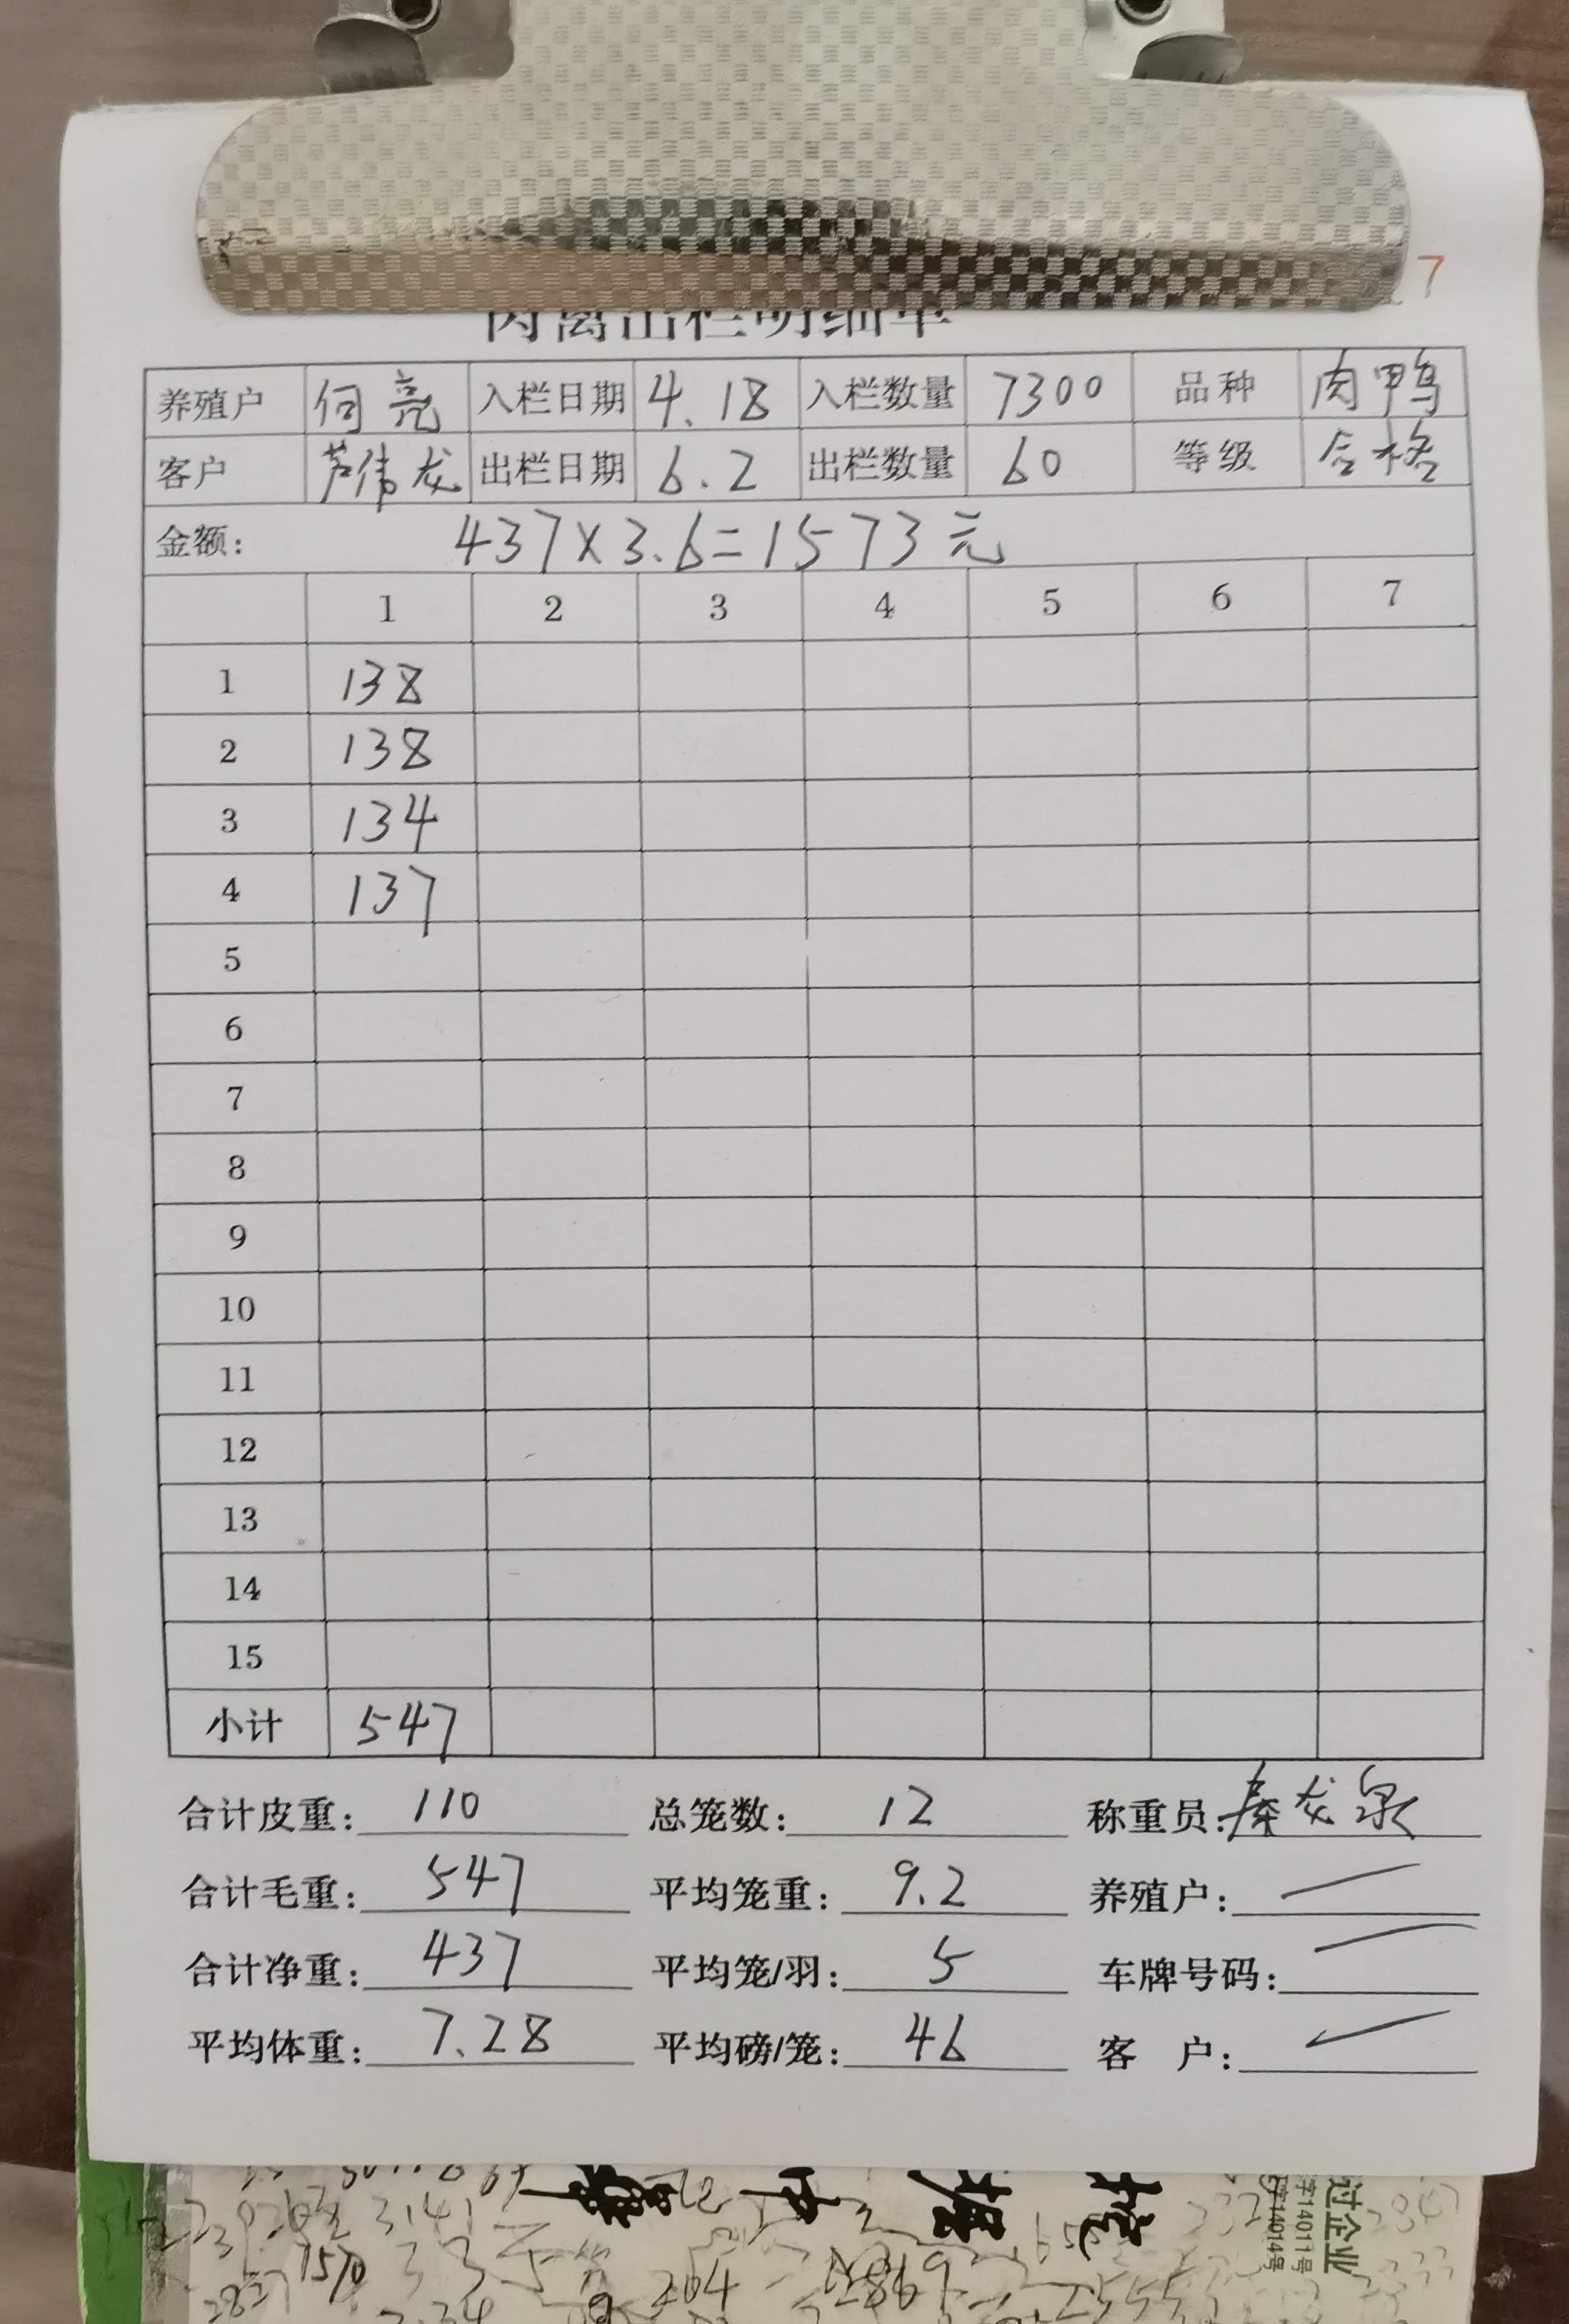 7
肉禽出栏明细单
养殖户 何亮 入栏日期 4.18 入栏数量 7300 品种 肉鸭
客户 芦伟龙 出栏日期 6.2 出栏数量 60 等级 合格
金额: 437×3.6=1573元
1 2 3 4 5 6 7
1 138
2 138
3 134
4 137
5
6
7
8
9
10
11
12
13
14
15
小计 547
合计皮重: 110 总笼数: 12 称重员: 秦龙泉
合计毛重: 547 平均笼重: 9.2 养殖户:
合计净重: 437 平均笼/羽: 5 车牌号码:
平均体重: 7.28 平均磅/笼: 46 客户:
过企业
3141
1570
204
2869